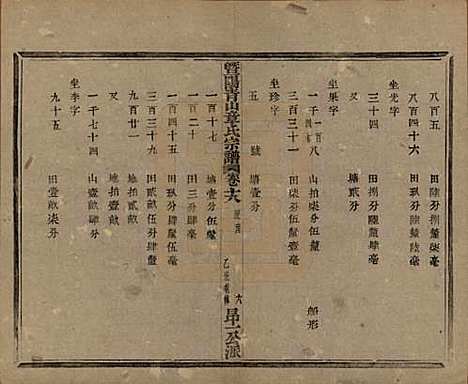 八百五
田陸分陸釐柒毫
坐光字
三十四
田捌分陸釐肆毫
又
塘貳分
坐果字
一千一百八
山拍柒分伍釐
船形
三百三十一
田柒分壹釐
坐珍字
五
號壹分
暨陽青山章氏宗譜卷十六
乙丑重修
六
昂一公派
一百十七
塘壹分伍釐
一百二十
田三分肆釐
一百四十五
田玖分肆釐伍毫
三百三十九
田貳畝伍分肆毫
九百廿一
塘拍壹畝
又
地拍貳畝
坐李字
一千七十四
山壹畝肆分
九十五
田壹畝柒分